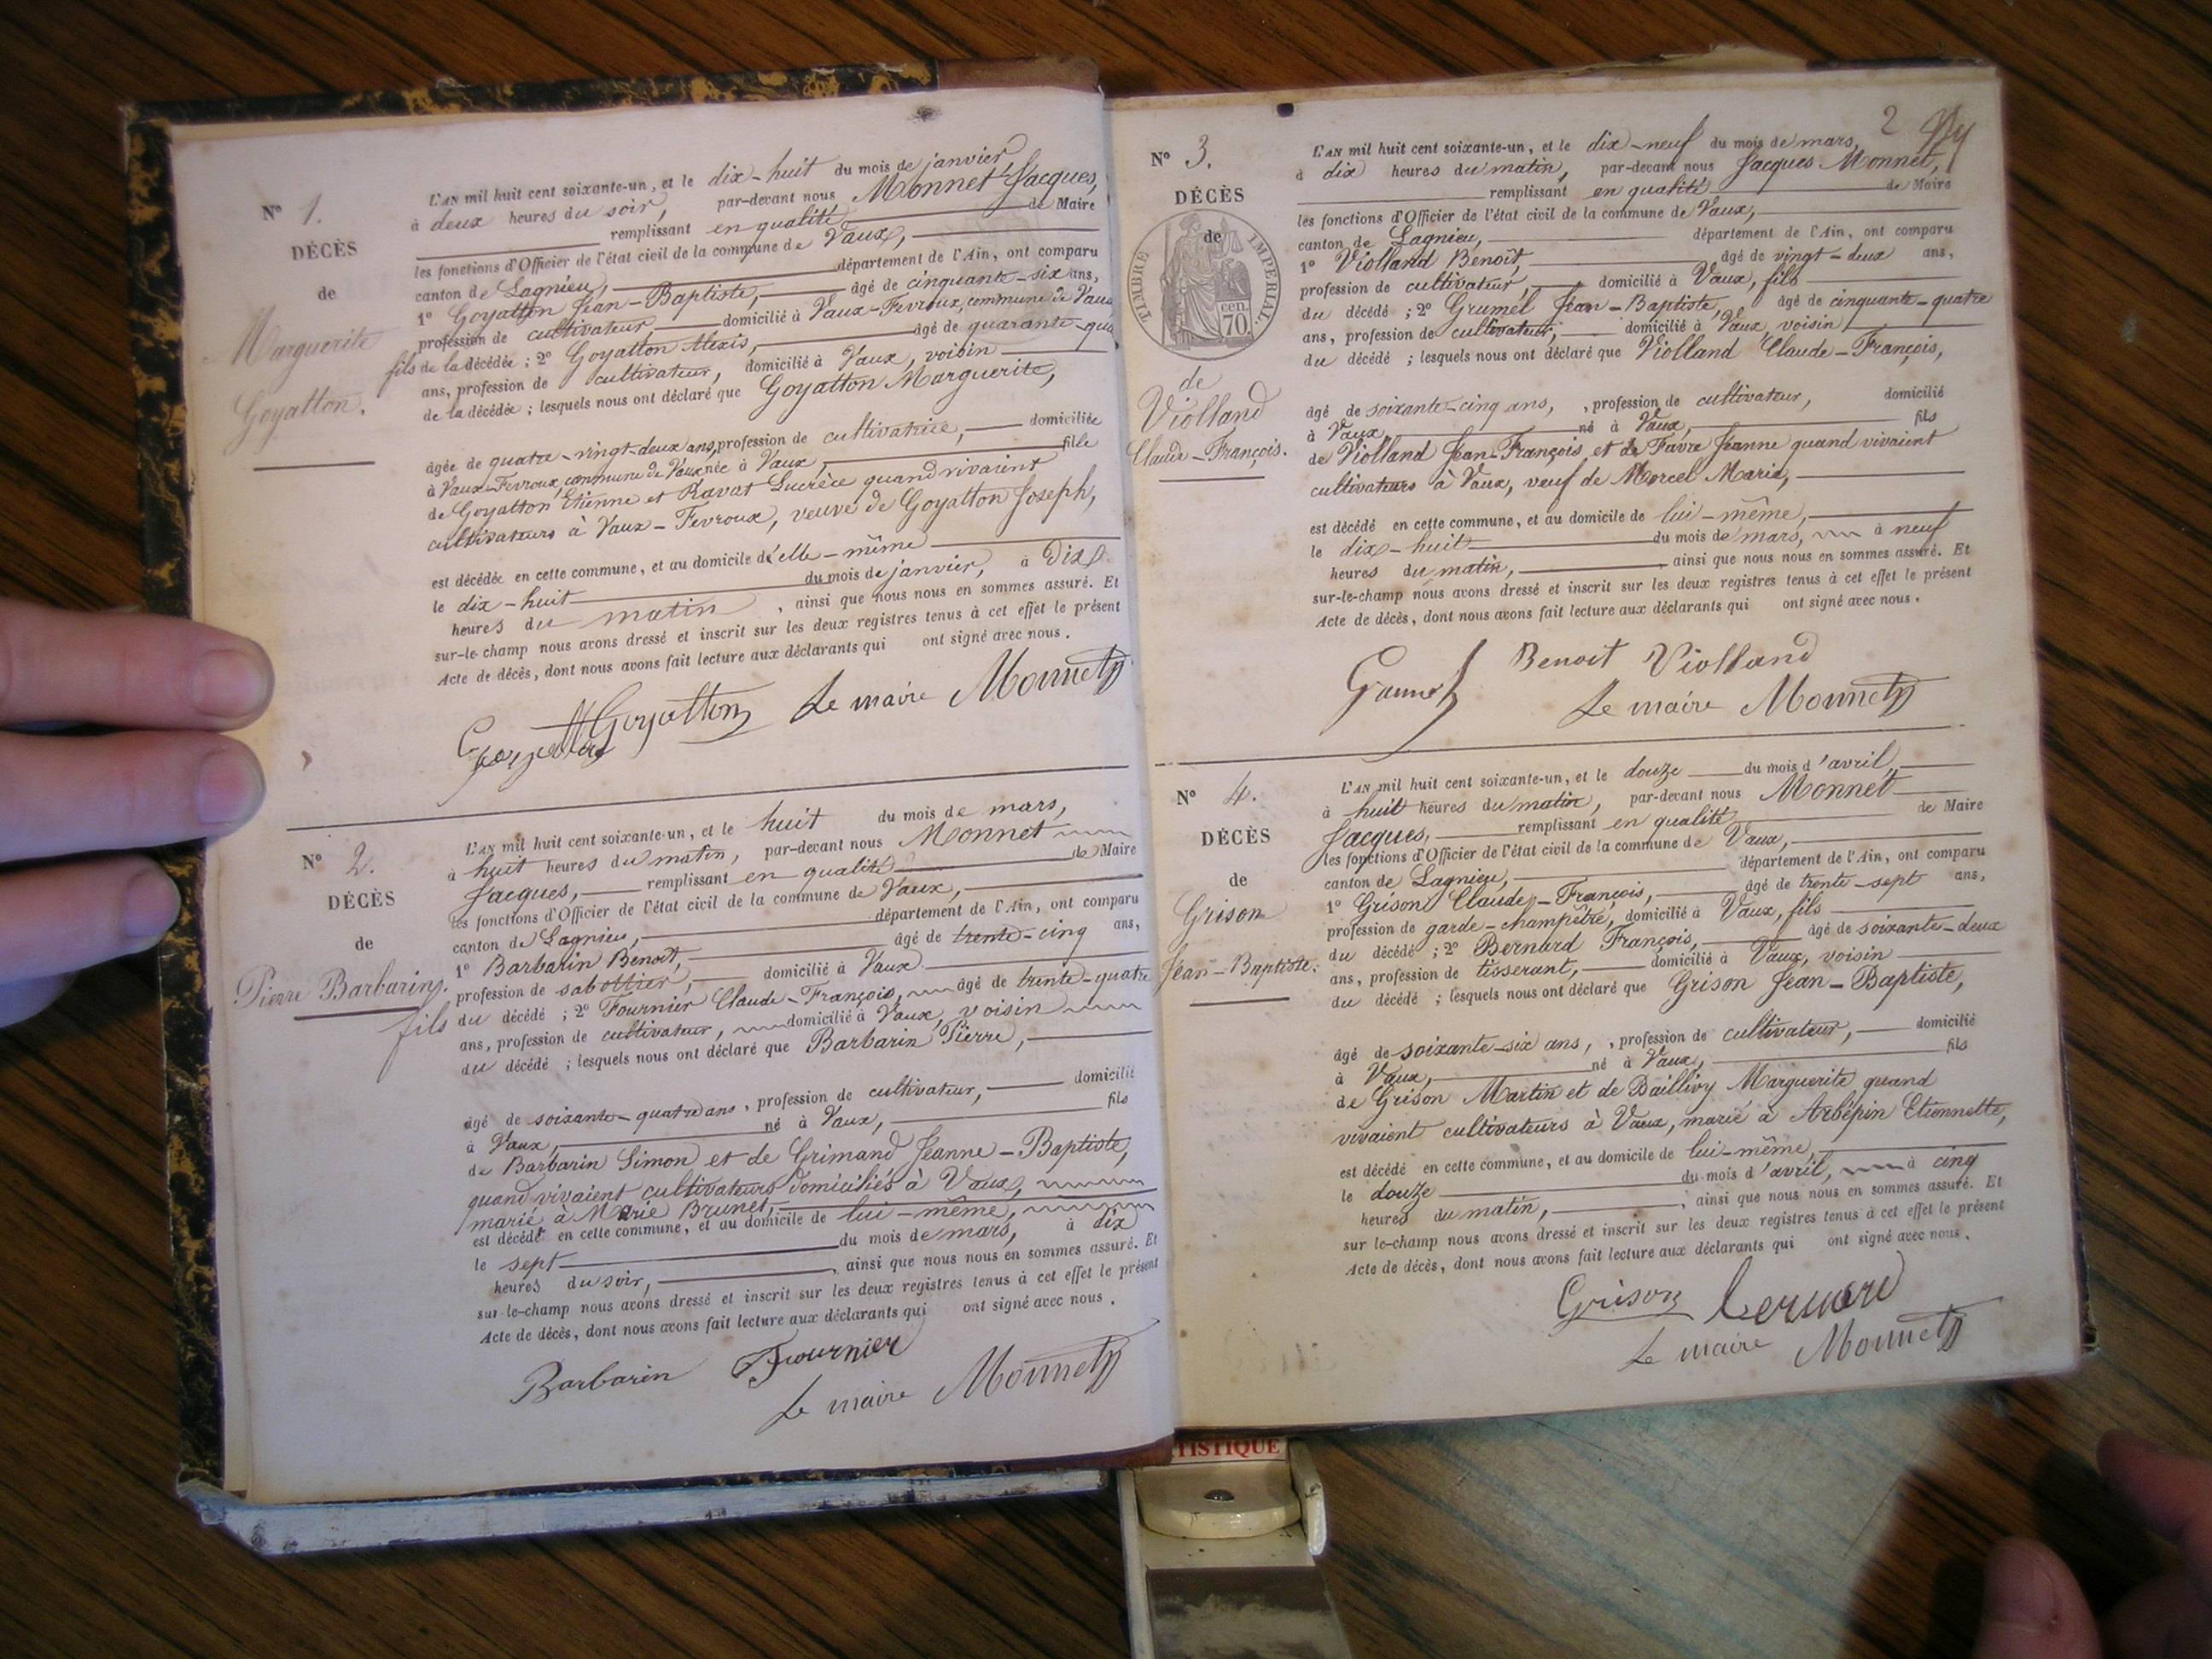 N° 1.
DÉCÈS
de
Marguerite
Goyatton.
L'AN mil huit cent soixante-un, et le dix-huit du mois de janvier,
à deux heures du soir, par-devant nous Monnet Jacques,
remplissant en qualité de Maire
les fonctions d'Officier de l'état civil de la commune de Vaux,
canton de Lagnieu, département de l'Ain, ont comparu
1° Goyatton Jean-Baptiste, âgé de cinquante-six ans,
profession de cultivateur, domicilié à Vaux-Fevroux, commune de Vaux
fils de la décédée ; 2° Goyatton Alexis, âgé de quarante-
ans, profession de cultivateur, domicilié à Vaux, voisin
de la décédée ; lesquels nous ont déclaré que Goyatton Marguerite,
âgée de quatre-vingt-deux ans, profession de cultivatrice, domiciliée
à Vaux-Fevroux, commune de Vaux née à Vaux, fille
de Goyatton Etienne et Ravat Lucrèce quand vivaient
cultivateurs à Vaux-Fevroux, veuve de Goyatton Joseph,
est décédée en cette commune, et au domicile d'elle-même
le dix-huit du mois de janvier, à Dix
heures du matin, ainsi que nous nous en sommes assuré. Et
sur-le-champ nous avons dressé et inscrit sur les deux registres tenus à cet effet le présent
Acte de décès, dont nous avons fait lecture aux déclarants qui ont signé avec nous.
Goyatton Le maire Monnet
N° 2.
DÉCÈS
de
Pierre Barbarin.
L'AN mil huit cent soixante-un, et le huit du mois de mars,
à huit heures du matin, par-devant nous Monnet
Jacques, remplissant en qualité de Maire
les fonctions d'Officier de l'état civil de la commune de Vaux,
canton de Lagnieu, département de l'Ain, ont comparu
1° Barbarin Benoît, âgé de trente-cinq ans,
profession de sabottier, domicilié à Vaux
fils du décédé ; 2° Fournier Claude-François, âgé de trente-quatre
ans, profession de cultivateur, domicilié à Vaux, voisin
du décédé ; lesquels nous ont déclaré que Barbarin Pierre,
âgé de soixante-quatre ans, profession de cultivateur, domicilié
à Vaux, né à Vaux, fils
de Barbarin Simon et de Grimand Jeanne-Baptiste,
quand vivaient cultivateurs domiciliés à Vaux,
marié à Marie Brunet,
est décédé en cette commune, et au domicile de lui-même,
le sept du mois de mars, à dix
heures du soir, ainsi que nous nous en sommes assuré. Et
sur-le-champ nous avons dressé et inscrit sur les deux registres tenus à cet effet le présent
Acte de décès, dont nous avons fait lecture aux déclarants qui ont signé avec nous.
Barbarin Fournier
Le maire Monnet
2
N° 3.
DÉCÈS
de
TIMBRE IMPERIAL
cen.
70.
de
Violland
Claude-François.
L'AN mil huit cent soixante-un, et le dix-neuf du mois de mars,
à dix heures du matin, par-devant nous Jacques Monnet,
remplissant en qualité de Maire
les fonctions d'Officier de l'état civil de la commune de Vaux,
canton de Lagnieu, département de l'Ain, ont comparu
1° Violland Benoît, âgé de vingt-deux ans,
profession de cultivateur, domicilié à Vaux, fils
du décédé ; 2° Grumel Jean-Baptiste, âgé de cinquante-quatre
ans, profession de cultivateur, domicilié à Vaux, voisin
du décédé ; lesquels nous ont déclaré que Violland Claude-François,
âgé de soixante-cinq ans, , profession de cultivateur, domicilié
à Vaux, né à Vaux, fils
de Violland Jean-François, et de Favre Jeanne quand vivaient
cultivateurs à Vaux, veuf de Morcel Marie,
est décédé en cette commune, et au domicile de lui-même,
le dix-huit du mois de mars, à neuf
heures du matin, ainsi que nous nous en sommes assuré. Et
sur-le-champ nous avons dressé et inscrit sur les deux registres tenus à cet effet le présent
Acte de décès, dont nous avons fait lecture aux déclarants qui ont signé avec nous.
Benoit Violland
Le maire Monnet
N° 4.
DÉCÈS
de
Grison
Jean-Baptiste.
L'AN mil huit cent soixante-un, et le douze du mois d'avril,
à huit heures du matin, par-devant nous Monnet
Jacques, remplissant en qualité de Maire
les fonctions d'Officier de l'état civil de la commune de Vaux,
canton de Lagnieu, département de l'Ain, ont comparu
1° Grison Claude-François, âgé de trente-sept ans,
profession de garde-champêtre, domicilié à Vaux, fils
du décédé ; 2° Bernard François, âgé de soixante-deux
ans, profession de tisserant, domicilié à Vaux, voisin
du décédé ; lesquels nous ont déclaré que Grison Jean-Baptiste,
âgé de soixante-six ans, , profession de cultivateur, domicilié
à Vaux, né à Vaux, fils
de Grison Martin et de Baillivy Marguerite quand
vivaient cultivateurs à Vaux, marié à Arbépin Etiennette,
est décédé en cette commune, et au domicile de lui-même,
le douze du mois d'avril, à cinq
heures du matin, ainsi que nous nous en sommes assuré. Et
sur le-champ nous avons dressé et inscrit sur les deux registres tenus à cet effet le présent
Acte de décès, dont nous avons fait lecture aux déclarants qui ont signé avec nous.
Grison Bernard
Le maire Monnet
TISTIQUE